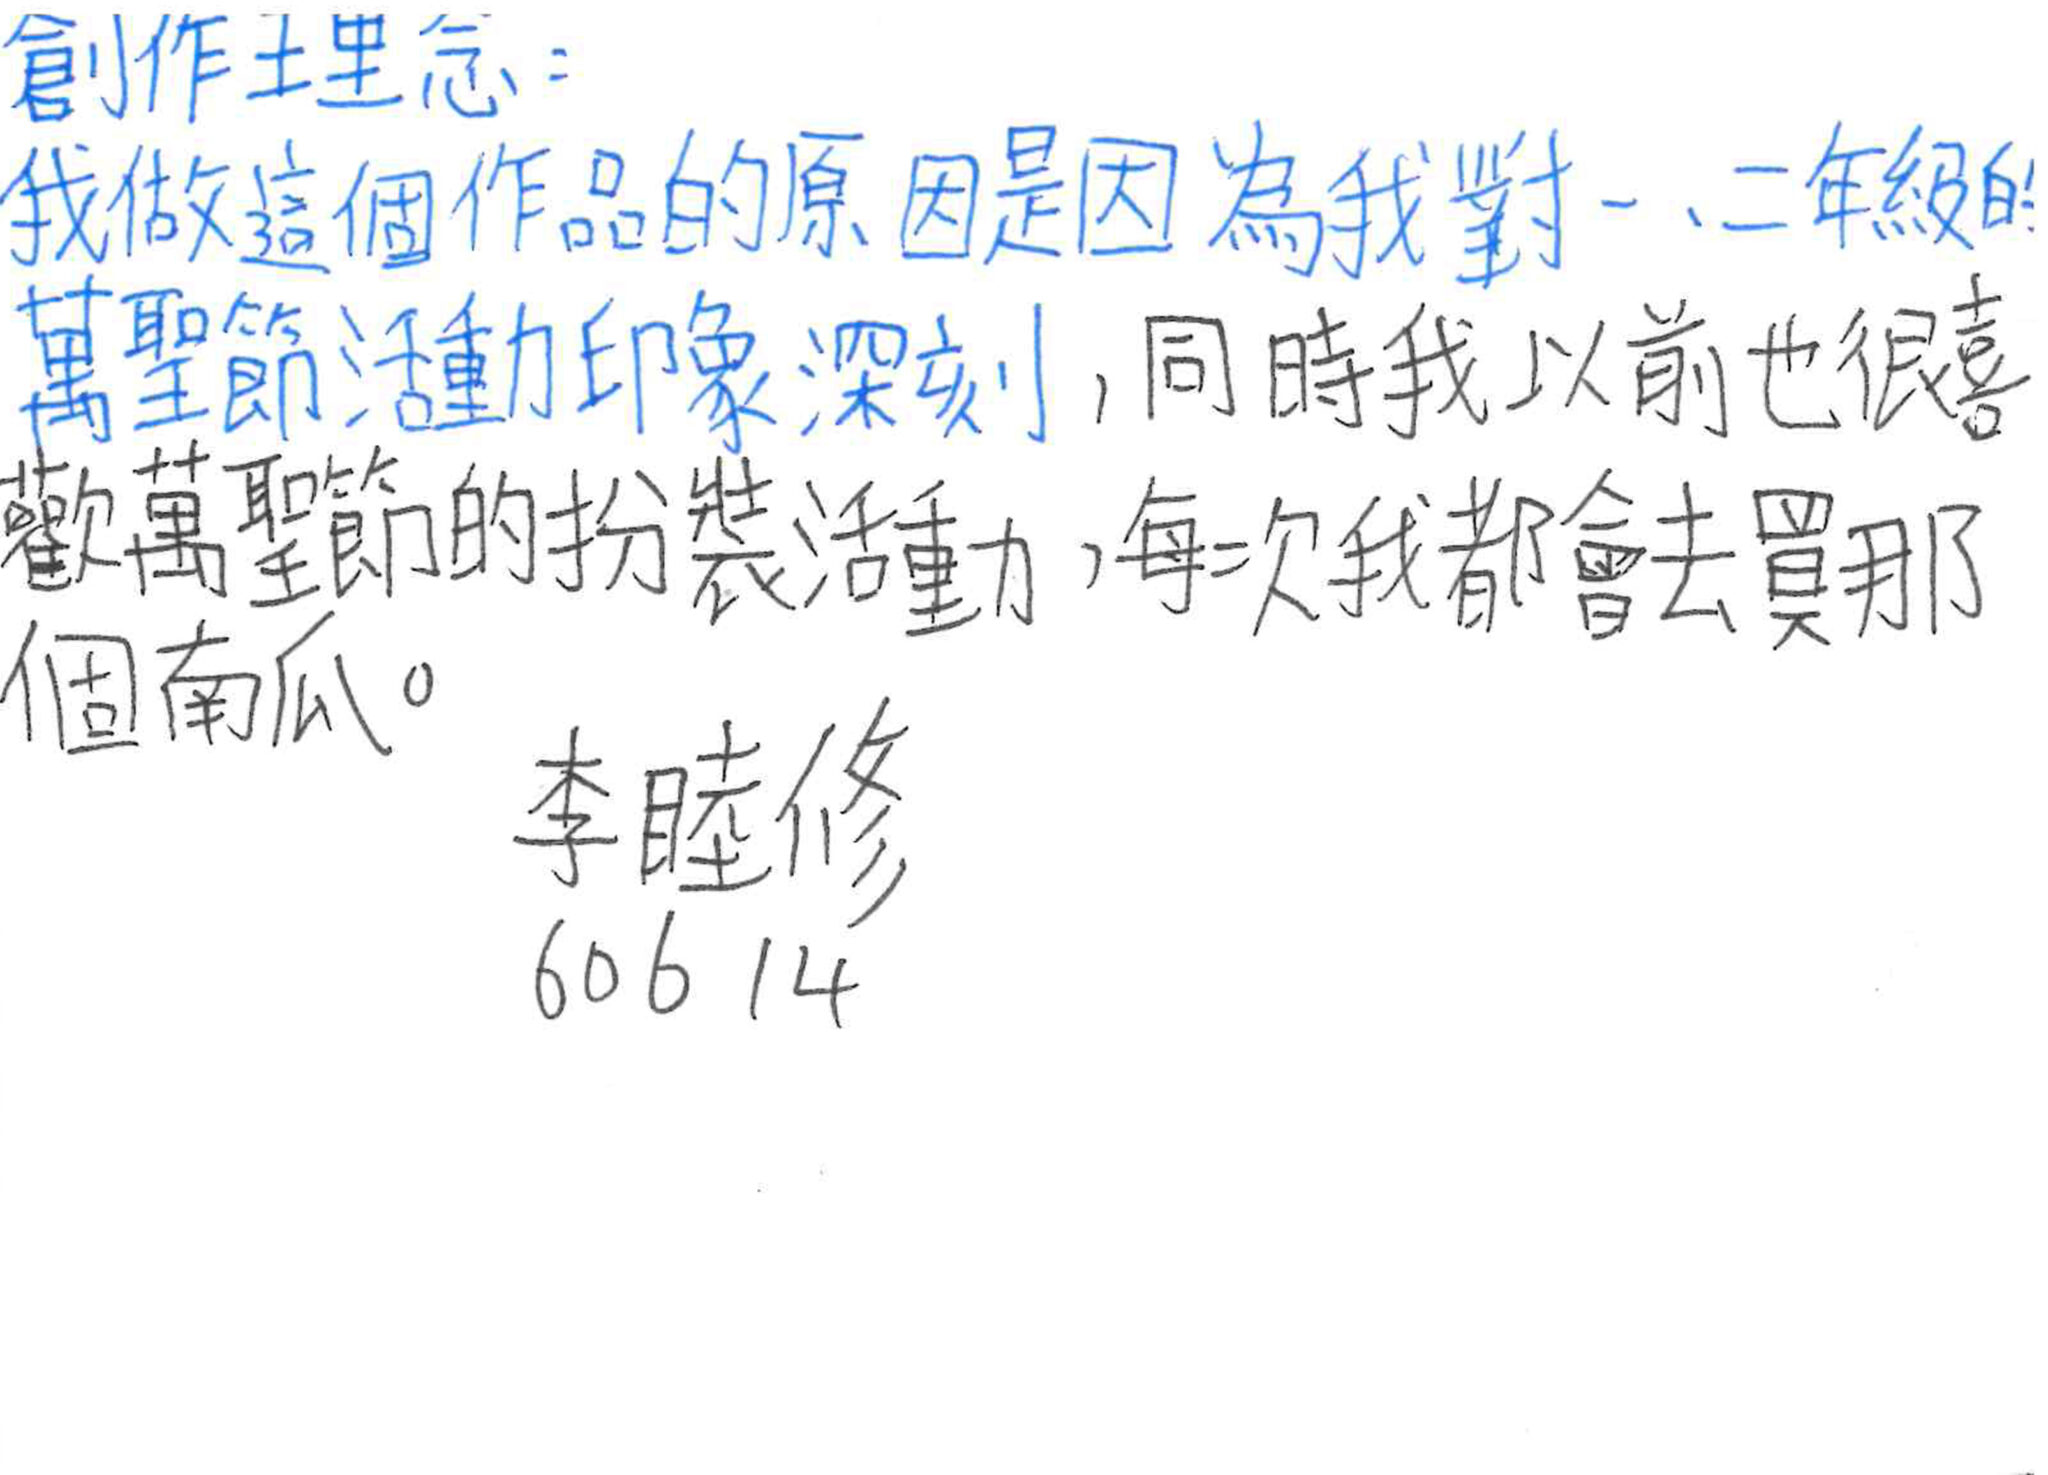 創作理念:
我做這個作品的原因是因為我對一、二年級的
萬聖節活動印象深刻,同時我以前也很喜
歡萬聖節的扮裝活動,每次我都會去買那
個南瓜。
李睦修
606 14